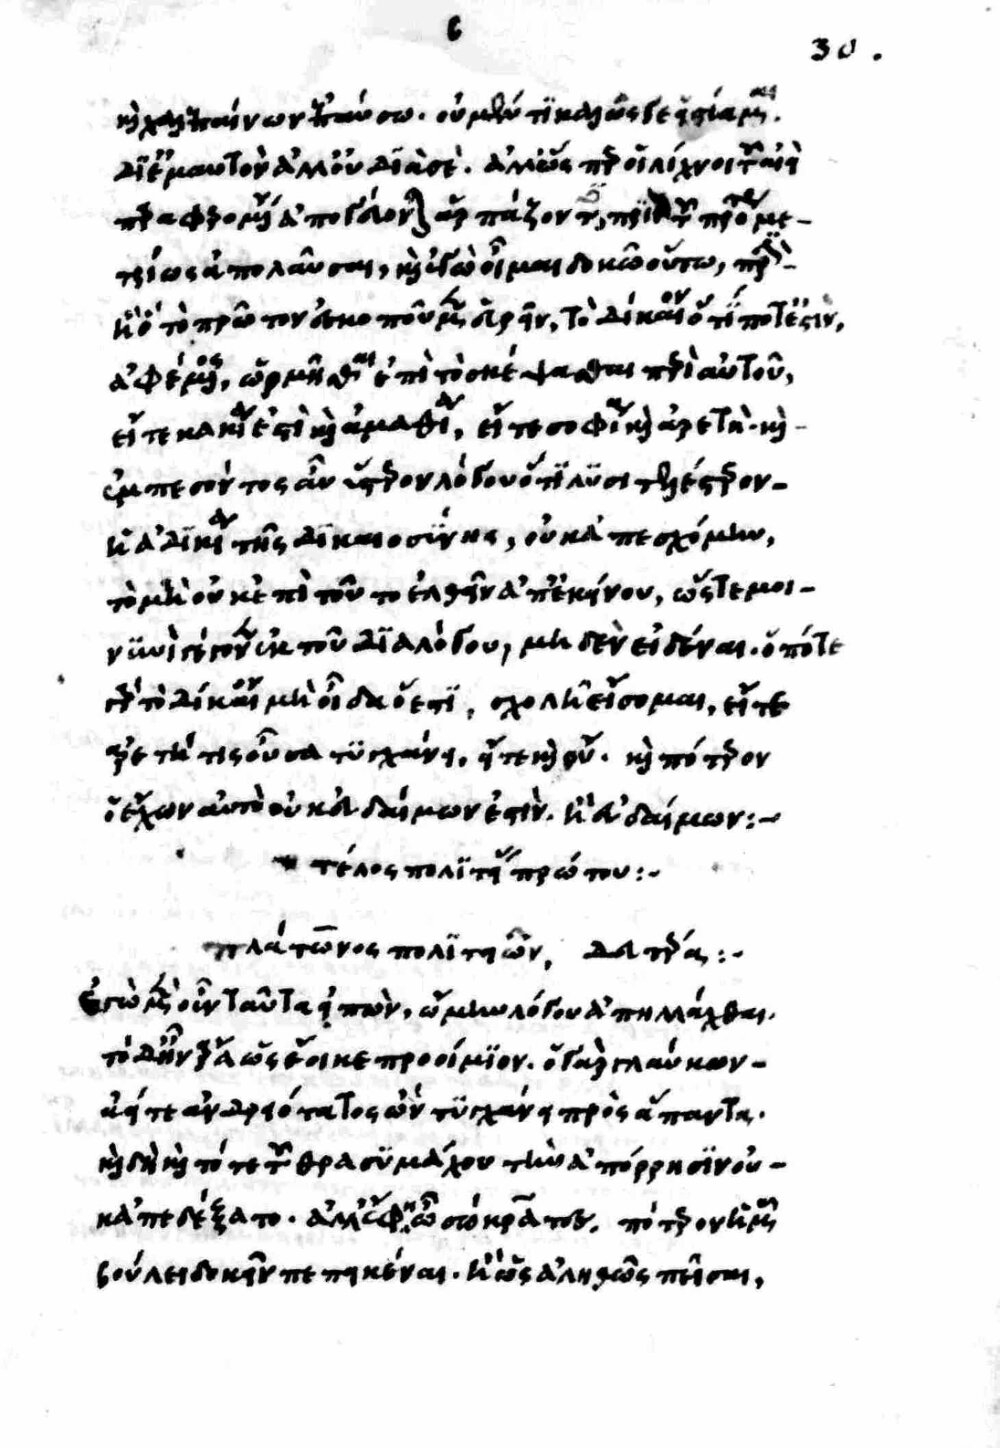 6
30.
καὶ χαλεπαίνων ἐπαύσω. οὐ μὲν τοι καλῶς γε εἱστίαμαι.
δι' ἐμαυτὸν ἀλλ' οὐ διὰ σὲ. ἀλλ' ὥσπερ οἱ λίχνοι τοῦ αἰεὶ
παραφερομένου ἀπογεύονται ἁρπάζοντες, πρὶν τοῦ προτέρου με-
τρίως ἀπολαῦσαι, καὶ ἐγὼ οἶμαι δοκῶ οὕτω, πρὶν
ἢ ὃ τὸ πρῶτον ἐσκοποῦμεν εὑρεῖν, τὸ δίκαιον ὅ τί ποτ' ἐστὶν,
ἀφέμενος, ὡρμῆσθαι ἐπὶ τὸ σκέψασθαι περὶ αὐτοῦ,
εἴτε κακία ἐστὶ καὶ ἀμαθία, εἴτε σοφία καὶ ἀρετὴ. καὶ
ἐμπεσόντος αὖ ὕστερον λόγου ὅτι λυσιτελέστερον
ἡ ἀδικία τῆς δικαιοσύνης, οὐκ ἀπεσχόμην,
τὸ μὴ οὐκ ἐπὶ τοῦτο ἐλθεῖν ἀπ' ἐκείνου, ὥστε μοι
νυνὶ γέγονεν ἐκ τοῦ διαλόγου, μηδὲν εἰδέναι. ὁπότε
γὰρ τὸ δίκαιον μὴ οἶδα ὅ ἐστι, σχολῇ εἴσομαι, εἴτε
ἀρετή τις οὖσα τυγχάνει, εἴτε καὶ οὔ. καὶ πότερον
ὁ ἔχων αὐτὸ οὐκ εὐδαίμων ἐστὶν. ἢ εὐδαίμων:-
τέλος πολιτειῶν πρώτου:-
πλάτωνος πολιτειῶν, δευτέρα:-
Ἐγὼ μὲν οὖν ταῦτα εἰπὼν, ᾤμην λόγου ἀπηλλάχθαι.
τὸ δ' ἦν ἄρα ὡς ἔοικε προοίμιον. ὁ γὰρ γλαύκων
ἀεί τε ἀνδρειότατος ὢν τυγχάνει πρὸς ἅπαντα.
καὶ δὴ καὶ τότε τοῦ θρασυμάχου τὴν ἀπόρρησιν οὐ-
κ ἀπεδέξατο. ἀλλ' ἔφη, ὦ σώκρατες, πότερον ἡμᾶς
βούλει δοκεῖν πεπεικέναι. ἢ ὡς ἀληθῶς πεῖσαι,